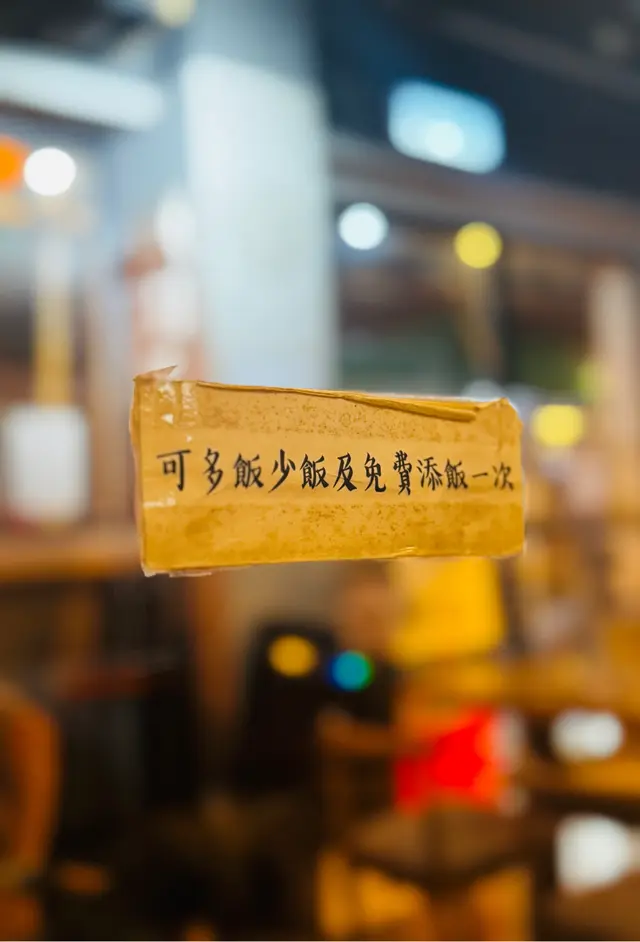 可多飯少飯及免費添飯一次